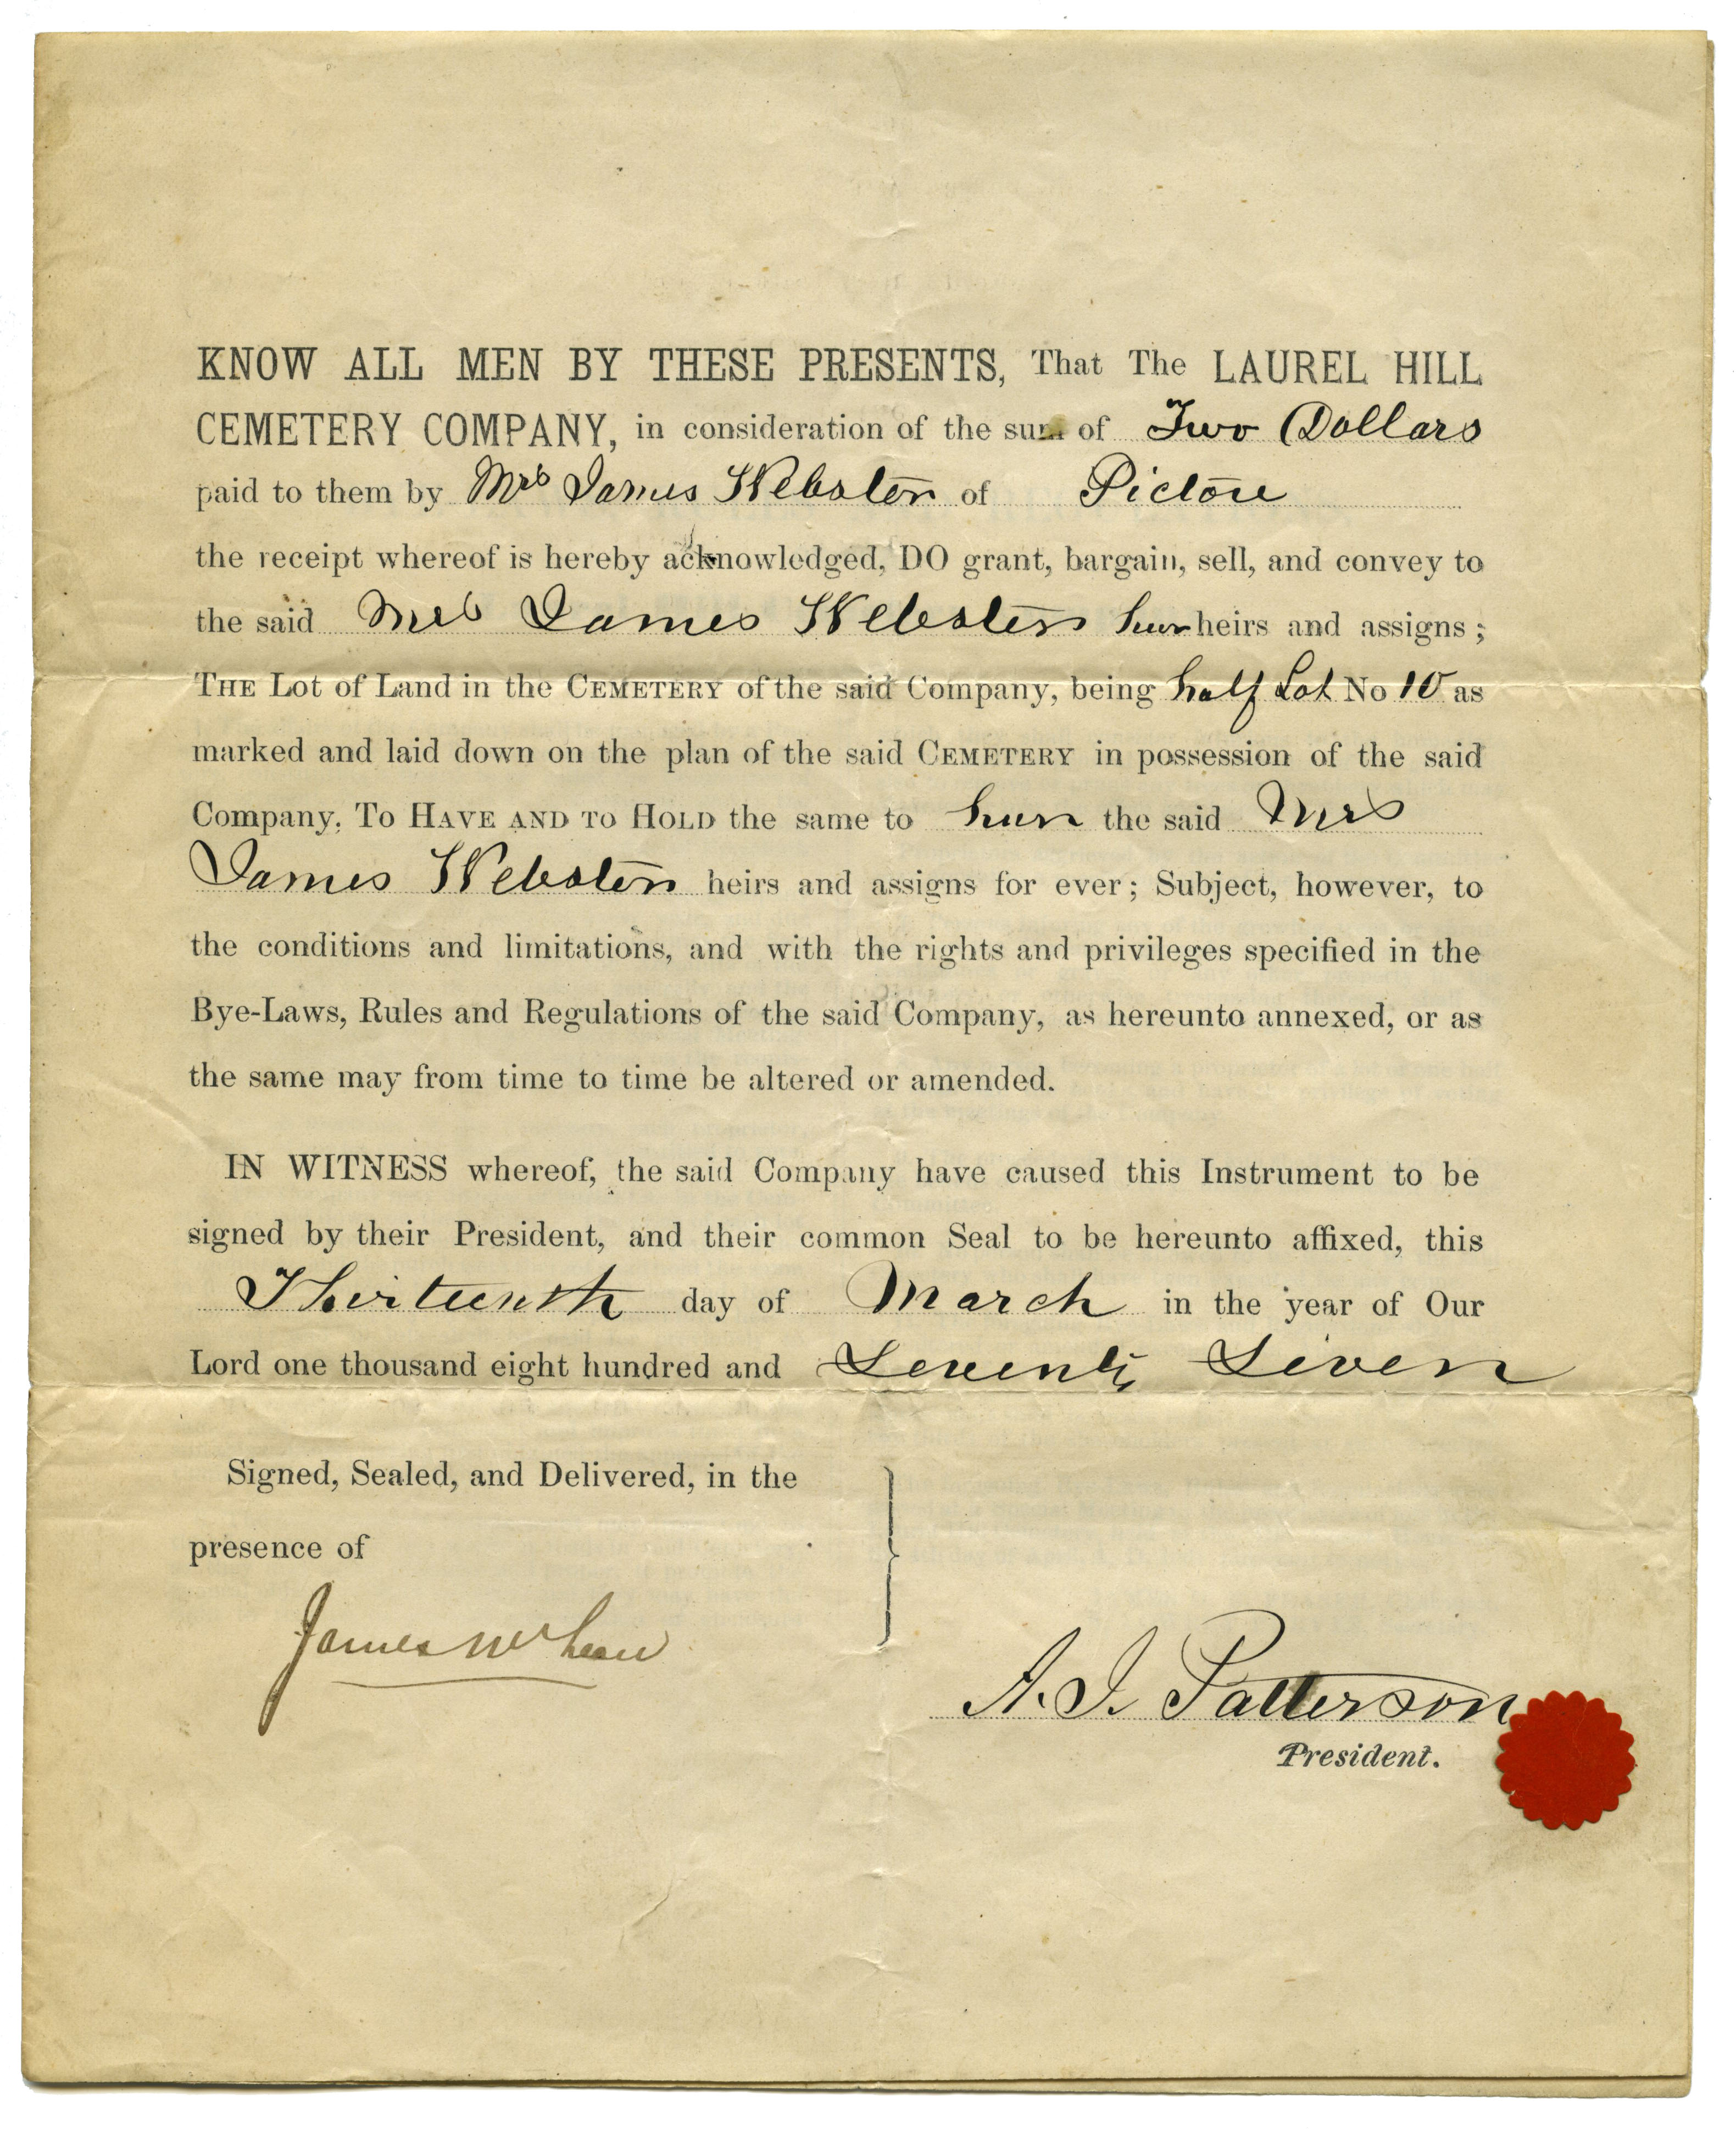 KNOW ALL MEN BY THESE PRESENTS, That The LAUREL HILL
CEMETERY COMPANY, in consideration of the sum of Two Dollars
paid to them by Mrs James Webster of Pictou
the receipt whereof is hereby acknowledged, DO grant, bargain, sell, and convey to
the said Mrs James Webster her heirs and assigns;
THE Lot of Land in the CEMETERY of the said Company, being half Lot No 10 as
marked and laid down on the plan of the said CEMETERY in possession of the said
Company. To HAVE AND TO HOLD the same to her the said Mrs
James Webster heirs and assigns for ever; Subject, however, to
the conditions and limitations, and with the rights and privileges specified in the
Bye-Laws, Rules and Regulations of the said Company, as hereunto annexed, or as
the same may from time to time be altered or amended.
IN WITNESS whereof, the said Company have caused this Instrument to be
signed by their President, and their common Seal to be hereunto affixed, this
Thirteenth day of March in the year of Our
Lord one thousand eight hundred and Seventy Seven
Signed, Sealed, and Delivered, in the
presence of
James McLean
A. J. Patterson
President.